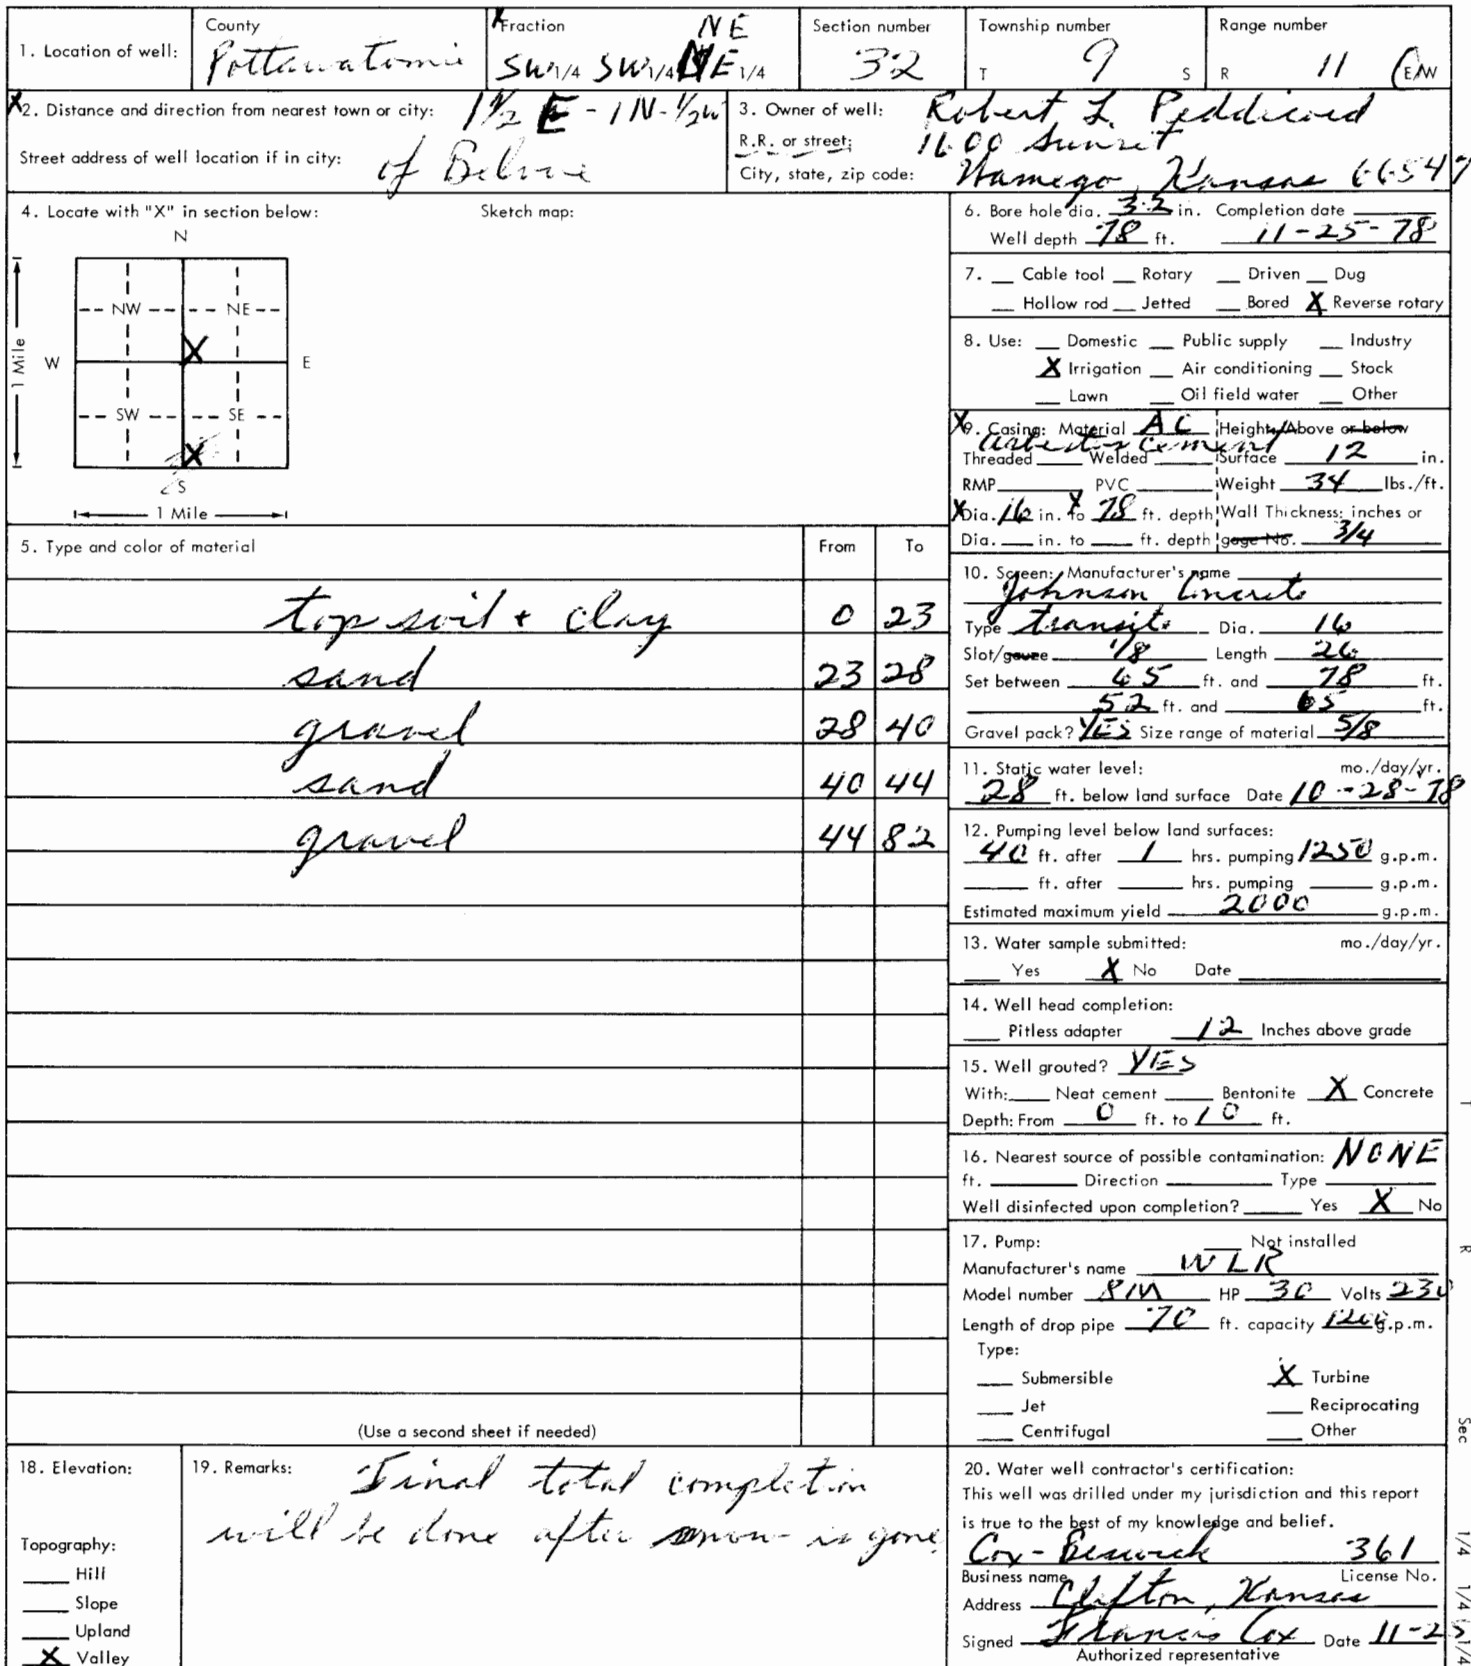 1. Location of well:
County
Pottawatomie
Fraction
NE
SW 1/4 SW 1/4 NE 1/4
Section number
32
Township number
T 9 S
Range number
R 11 E/W
2. Distance and direction from nearest town or city: 1 1/2 E - 1 N - 1/2 W
Street address of well location if in city: of Belvue
3. Owner of well: Robert L. Peddicord
R.R. or street: 1600 Sunset
City, state, zip code: Wamego, Kansas 66547
4. Locate with "X" in section below:
Sketch map:
N
NW NE
W X E
SW SE
X
S
1 Mile
1 Mile
5. Type and color of material From To
top soil + clay 0 23
sand 23 28
gravel 28 40
sand 40 44
gravel 44 82
(Use a second sheet if needed)
6. Bore hole dia. 32 in. Completion date
Well depth 78 ft. 11-25-78
7. Cable tool Rotary Driven Dug
Hollow rod Jetted Bored X Reverse rotary
8. Use: Domestic Public supply Industry
X Irrigation Air conditioning Stock
Lawn Oil field water Other
9. Casing: Material AC Height: Above or below
asbestos cement
Threaded Welded Surface 12 in.
RMP PVC Weight 34 lbs./ft.
Dia. 16 in. to 78 ft. depth Wall Thickness: inches or
Dia. in. to ft. depth gage No. 3/4
10. Screen: Manufacturer's name
Johnson Concrete
Type transite Dia. 16
Slot/gauze 1/8 Length 26
Set between 65 ft. and 78 ft.
52 ft. and 65 ft.
Gravel pack? YES Size range of material 5/8
11. Static water level: mo./day/yr.
28 ft. below land surface Date 10-28-78
12. Pumping level below land surfaces:
40 ft. after 1 hrs. pumping 1250 g.p.m.
ft. after hrs. pumping g.p.m.
Estimated maximum yield 2000 g.p.m.
13. Water sample submitted: mo./day/yr.
Yes X No Date
14. Well head completion:
Pitless adapter 12 Inches above grade
15. Well grouted? YES
With: Neat cement Bentonite X Concrete
Depth: From 0 ft. to 10 ft.
16. Nearest source of possible contamination: NONE
ft. Direction Type
Well disinfected upon completion? Yes X No
17. Pump: Not installed
Manufacturer's name WLR
Model number 8M HP 30 Volts 230
Length of drop pipe 70 ft. capacity 1200 g.p.m.
Type:
Submersible X Turbine
Jet Reciprocating
Centrifugal Other
18. Elevation:
Topography:
Hill
Slope
Upland
X Valley
19. Remarks: Final total completion
will be done after snow is gone.
20. Water well contractor's certification:
This well was drilled under my jurisdiction and this report
is true to the best of my knowledge and belief.
Cox-Beswick 361
Business name License No.
Address Clifton, Kansas
Signed Francis Cox Date 11-25
Authorized representative
T
R
Sec
1/4 1/4 1/4